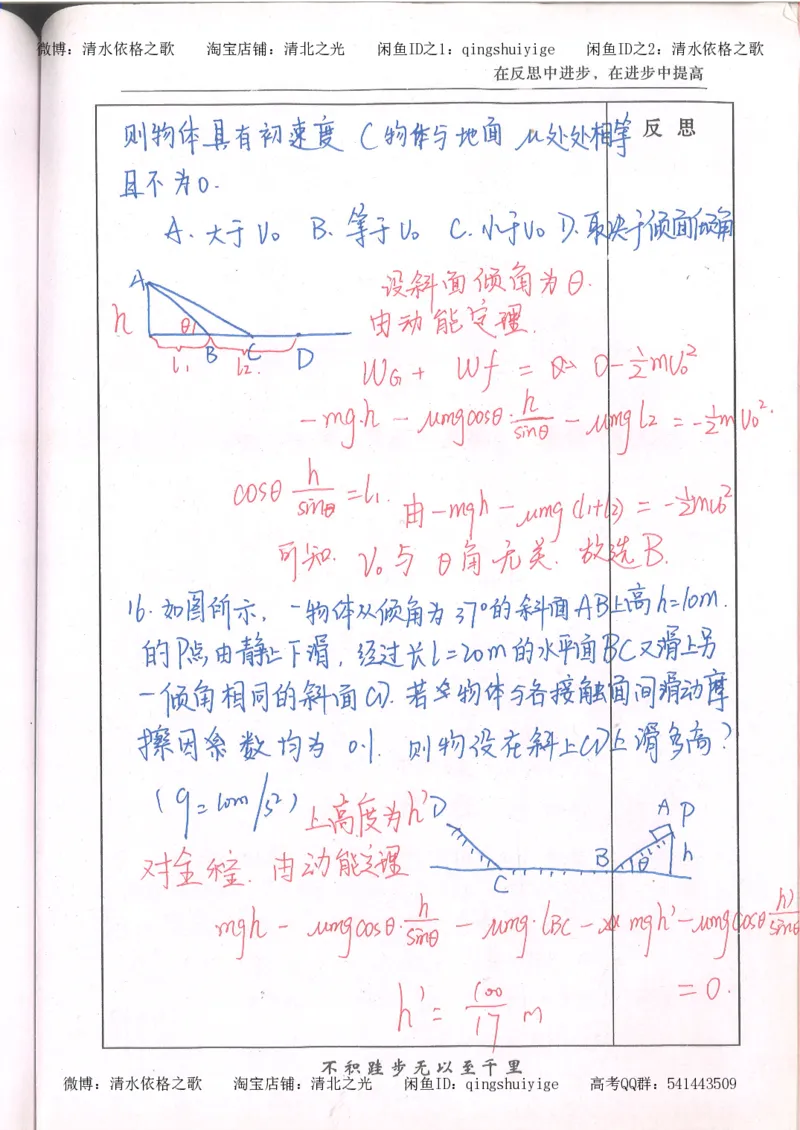 微博：清水依格之歌 淘宝店铺：清北之光 闲鱼ID之1：qingshuiyige 闲鱼ID之2：清水依格之歌
在反思中进步，在进步中提高
反思
则物体具有初速度 (物体与地面 μ处处相等
且不为0.
A. 大于V₀ B. 等于V₀ C. 小于V₀ D. 取决于倾面倾角
A h θ B C D l₁ l₂.
设斜面倾角为θ.
由动能定理.
WG + Wf = 0 - ½mV₀²
-mg·h - μmgcosθ·h/sinθ - μmgl₂ = -½mV₀².
cosθ h/sinθ = l₁. 由-mgh - μmg(l₁+l₂) = -½mV₀²
可知. V₀与θ角无关. 故选B.
16. 如图所示，一物体从倾角为37°的斜面AB上高h=10m.
的P点由静止下滑，经过长l=20m的水平面BC又滑上另
一倾角相同的斜面CD. 若物体与各接触面间滑动摩
擦因系数均为 0.1. 则物没在斜上CD上滑多高？
(g=10m/s²) 上高度为h'
D C B θ A P h
对全程. 由动能定理
mgh - μmgcosθ·h/sinθ - μmg·lBC - mgh' - μmgcosθ h'/sinθ
= 0.
h' = 100/17 m
不积跬步无以至千里
微博：清水依格之歌 淘宝店铺：清北之光 闲鱼ID：qingshuiyige 高考QQ群：541443509